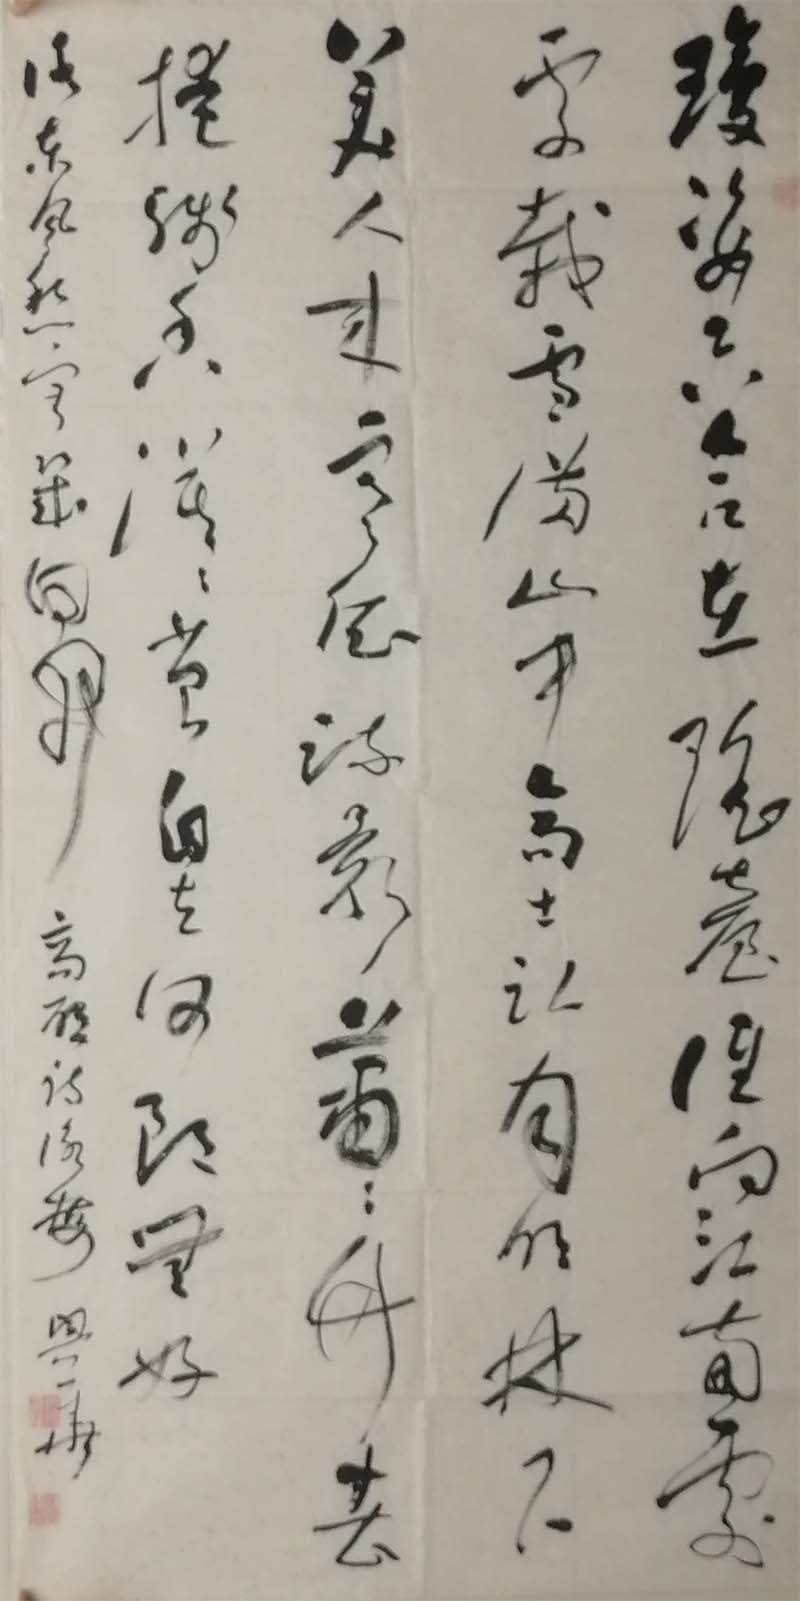 瓊姿只合在瑤臺誰向江南處
處栽雪滿山中高士臥月明林下
美人來寒依疏影蕭〻竹春
掩殘香漠〻苔自去何郎無好
詠東風愁寂幾回開 高啟詩詠梅